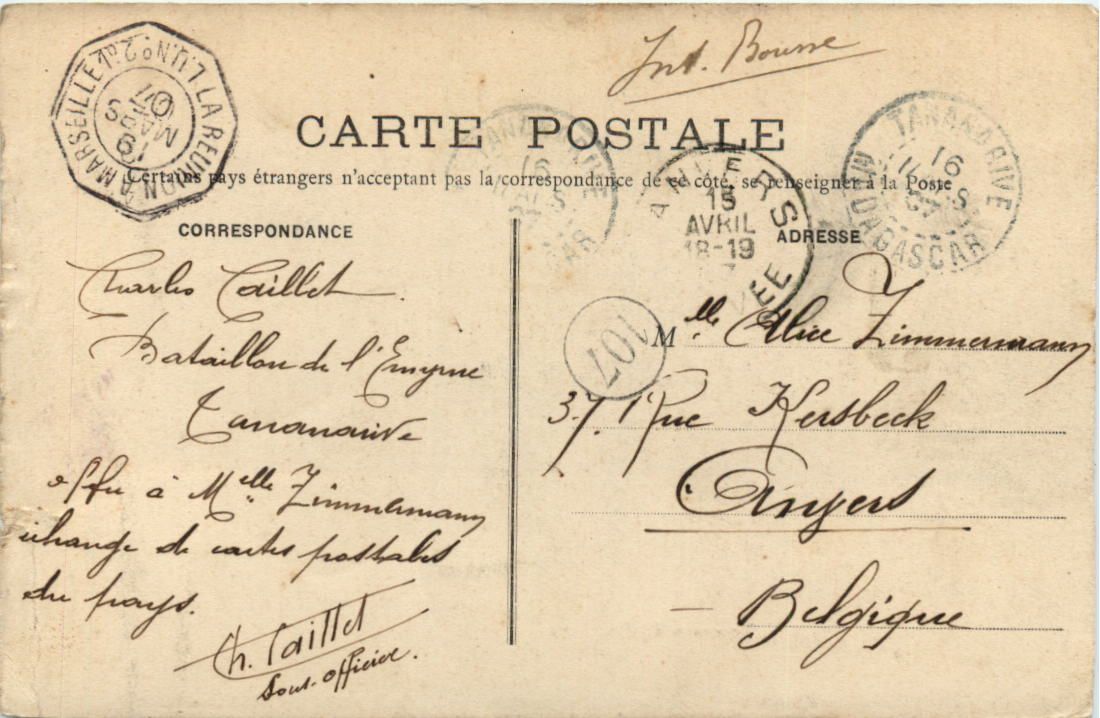 Int. Bourse
LA REUNION A MARSEILLE 1° L.U. N° 2
19
MARS
07
TANANARIVE
16
MARS
07
MADAGASCAR
CARTE POSTALE
Certains pays étrangers n'acceptant pas la correspondance de ce côté, se renseigner à la Poste
ANVERS
15
AVRIL
18-19
CORRESPONDANCE
ADRESSE
Charles Caillet.
Bataillon de l'Emyrne
Tananarive
offre à Melle Zimmermann
échange de cartes postales
du pays.
Ch. Caillet
Sous-officier.
107
Mlle Alice Zimmermann
37, Rue Kersbeck
Anvers
Belgique